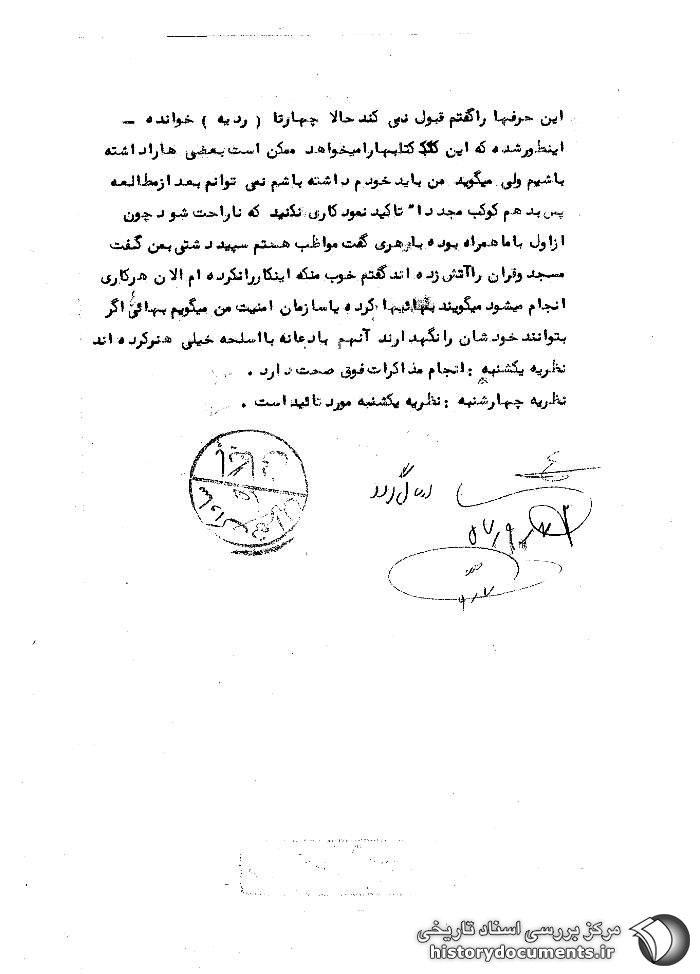 این حرفها راگفتم قبول نمی کند حالا چهارتا ( ردیه ) خوانده –
اینطورشده که این کتابهارامیخواهد ممکن است بعضی هاراداشته
باشیم ولی میگوید من باید خودم داشته باشم نمی توانم بعد ازمطالعه
پس بدهم کوکب مجددا" تاکید نمود کاری نکنید که ناراحت شود چون
ازاول باماهمراه بوده بازهری گفت مواظب هستم سپیددشتی بمن گفت
مسجد وقران راآتش زده اند گفتم خوب منکه اینکاررانکرده ام الان هرکاری
انجام میشود میگویند بهائیها کرده یاسازمان امنیت من میگویم بهائی اگر
بتوانند خودشان رانگهدارند آنهم بادعانه بااسلحه خیلی هنرکرده اند
نظریه یکشنبه : انجام مذاکرات فوق صحت دارد .
نظریه چهارشنبه : نظریه یکشنبه مورد تائید است .
مرکز بررسی اسناد تاریخی
historydocuments.ir